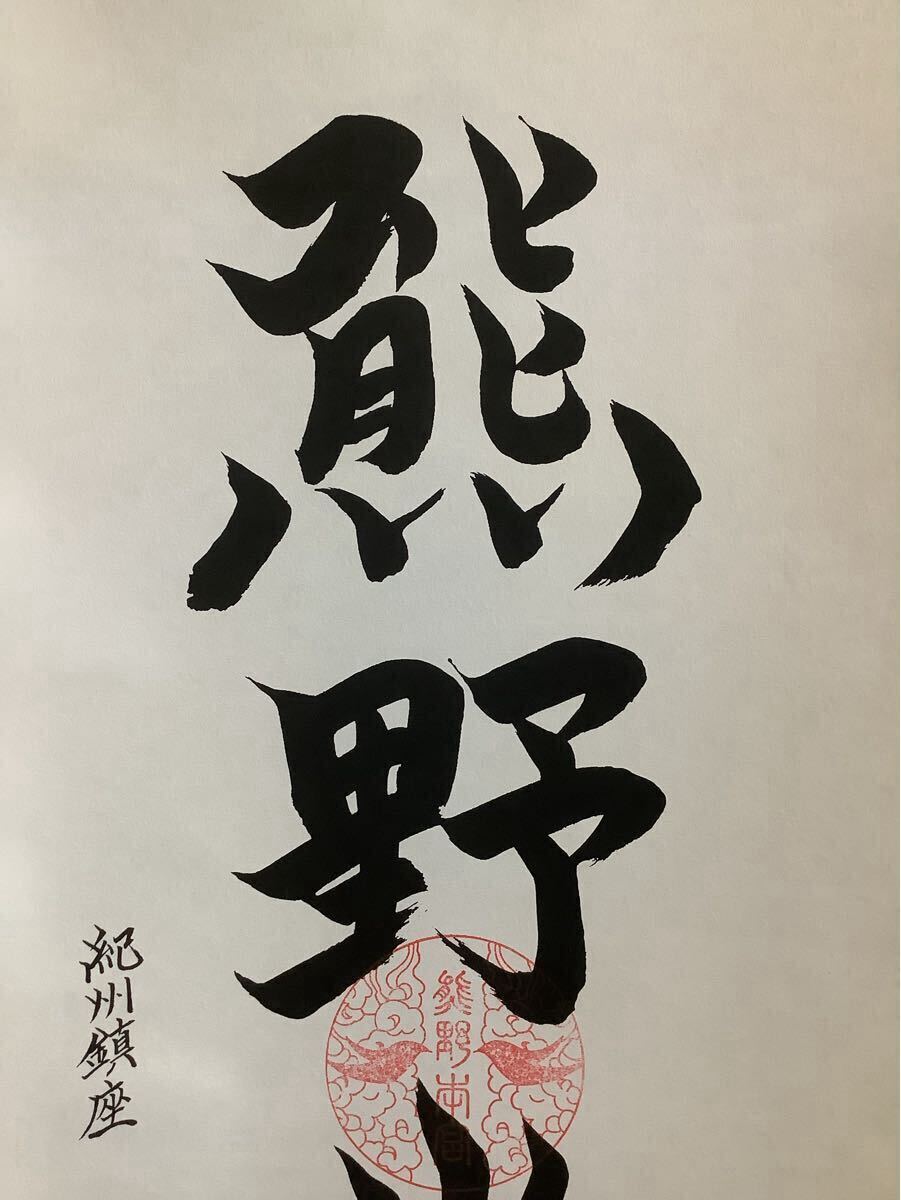 熊野
紀州鎮座
熊野本宮